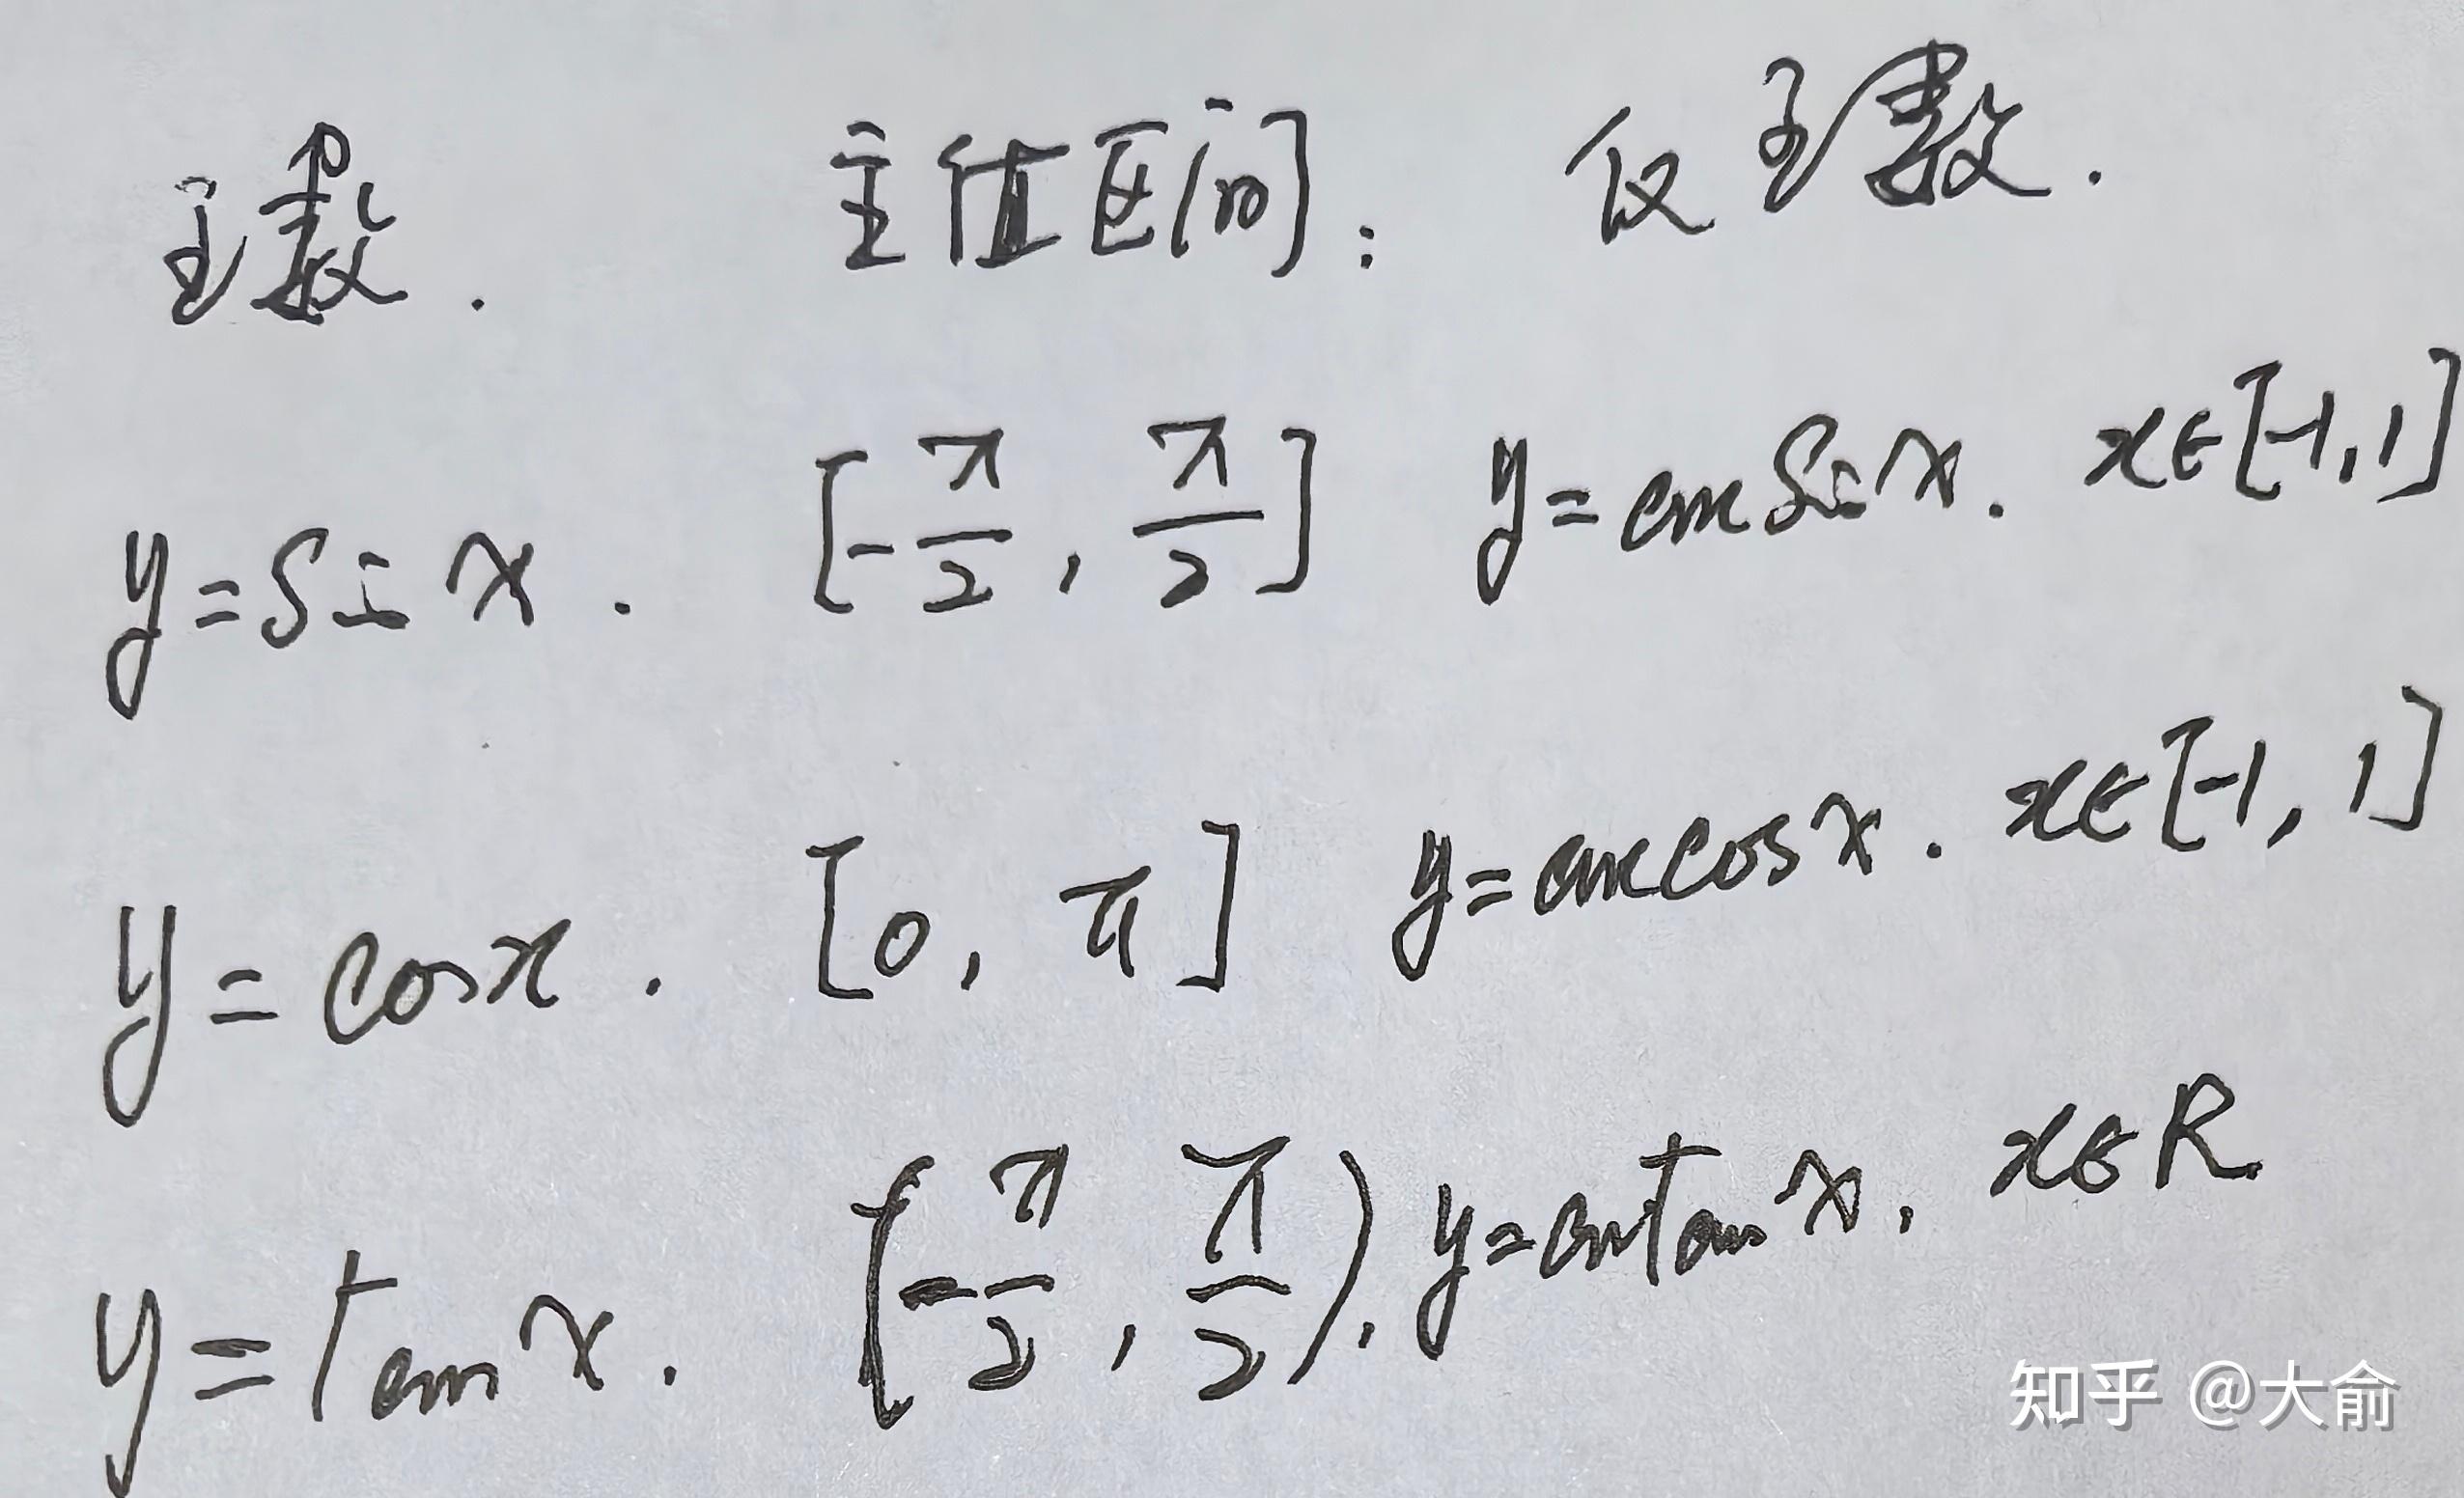 函数. 主值区间: 反函数.
y=sin x. [-π/2, π/2] y=arcsin x. x∈[-1,1]
y=cosx. [0, π] y=arccosx. x∈[-1, 1]
y=tanx. (-π/2, π/2). y=arctanx, x∈R
知乎 @大俞